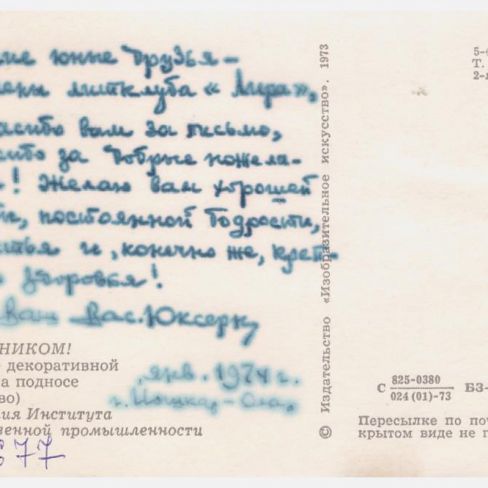 ие юные друзья –
лены литклуба «Лира»,
асибо вам за письмо,
сибо за добрые пожела-
! Желаю вам хорошей
постоянной бодрости,
стья и, конечно же, креп-
о здоровья!
Ваш Вас. Юксерн
янв. 1974 г.
г. Йошкар-Ола
НИКОМ!
декоративной
а подносе
во)
ия Института
венной промышленности
677
© Издательство «Изобразительное искусство». 1973
5-
Т.
2-
С 825-0380 БЗ-
024 (01)-73
Пересылке по по
крытом виде не п